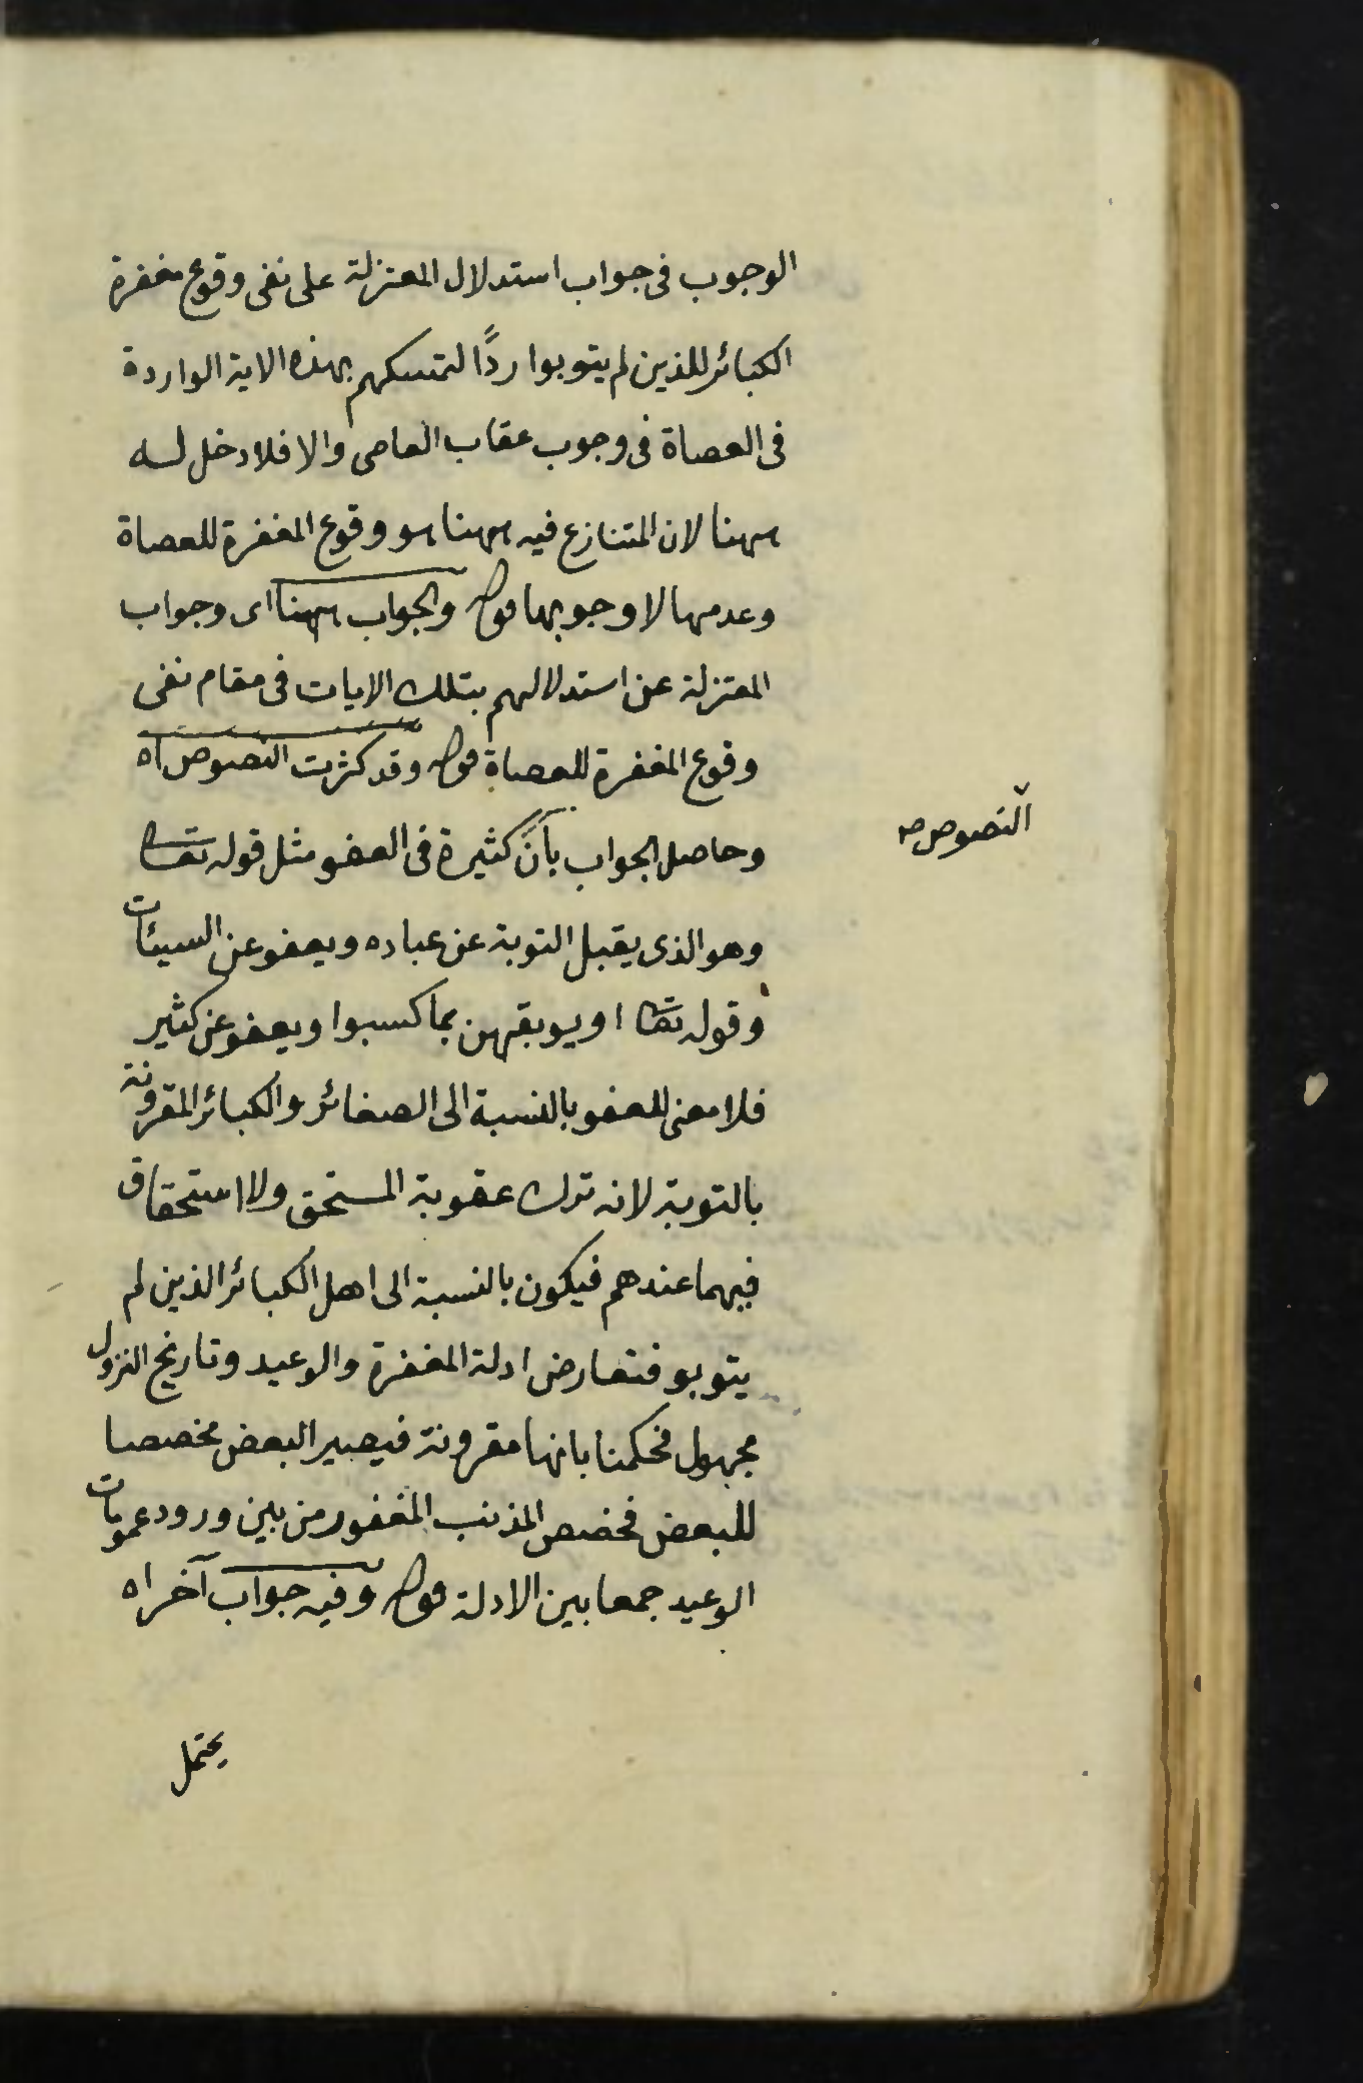 الوجوب فى جواب استدلال المعتزلة على نفى وقوع مغفرة
الكبائر للذين لم يتوبوا ردًا لتمسكهم بهذه الاية الواردة
فى العصاة فى وجوب عقاب العاصى والا فلا دخل له
ههنا لان المتنازع فيه ههنا هو وقوع المغفرة للعصاة
وعدمها لا وجوبها قوله والجواب ههنا اى وجواب
المعتزلة عن استدلالهم بتلك الايات فى مقام نفى
وقوع المغفرة للعصاة قوله وقد كثرت النصوص اه
وحاصل الجواب بأنَّ كثيرة فى العفو مثل قوله تعالى
النصوص صح
وهو الذى يقبل التوبة عن عباده ويعفو عن السيئات
وقوله تعالى او يوبقهن بما كسبوا ويعفو عن كثير
فلا معنى للعفو بالنسبة الى الصغائر والكبائر المقرونة
بالتوبة لانه ترك عقوبة المستحق ولا استحقاق
فيهما عندهم فيكون بالنسبة الى اهل الكبائر الذين لم
يتوبو فتعارض ادلة المغفرة والوعيد وتاريخ النزول
مجهول فحكمنا بانها مقرونة فيصير البعض مخصصا
للبعض فخصص المذنب المغفور من بين ورود عمومات
الوعيد جمعا بين الادلة قوله وفيه جواب آخر اه
يحتمل